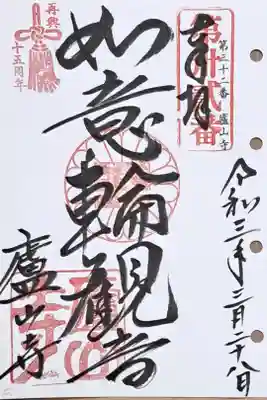 奉拝
第三十二番 廬山寺
第卅弐番
令和三年三月二十八日
如意輪観音
廬山寺
再興
十五周年